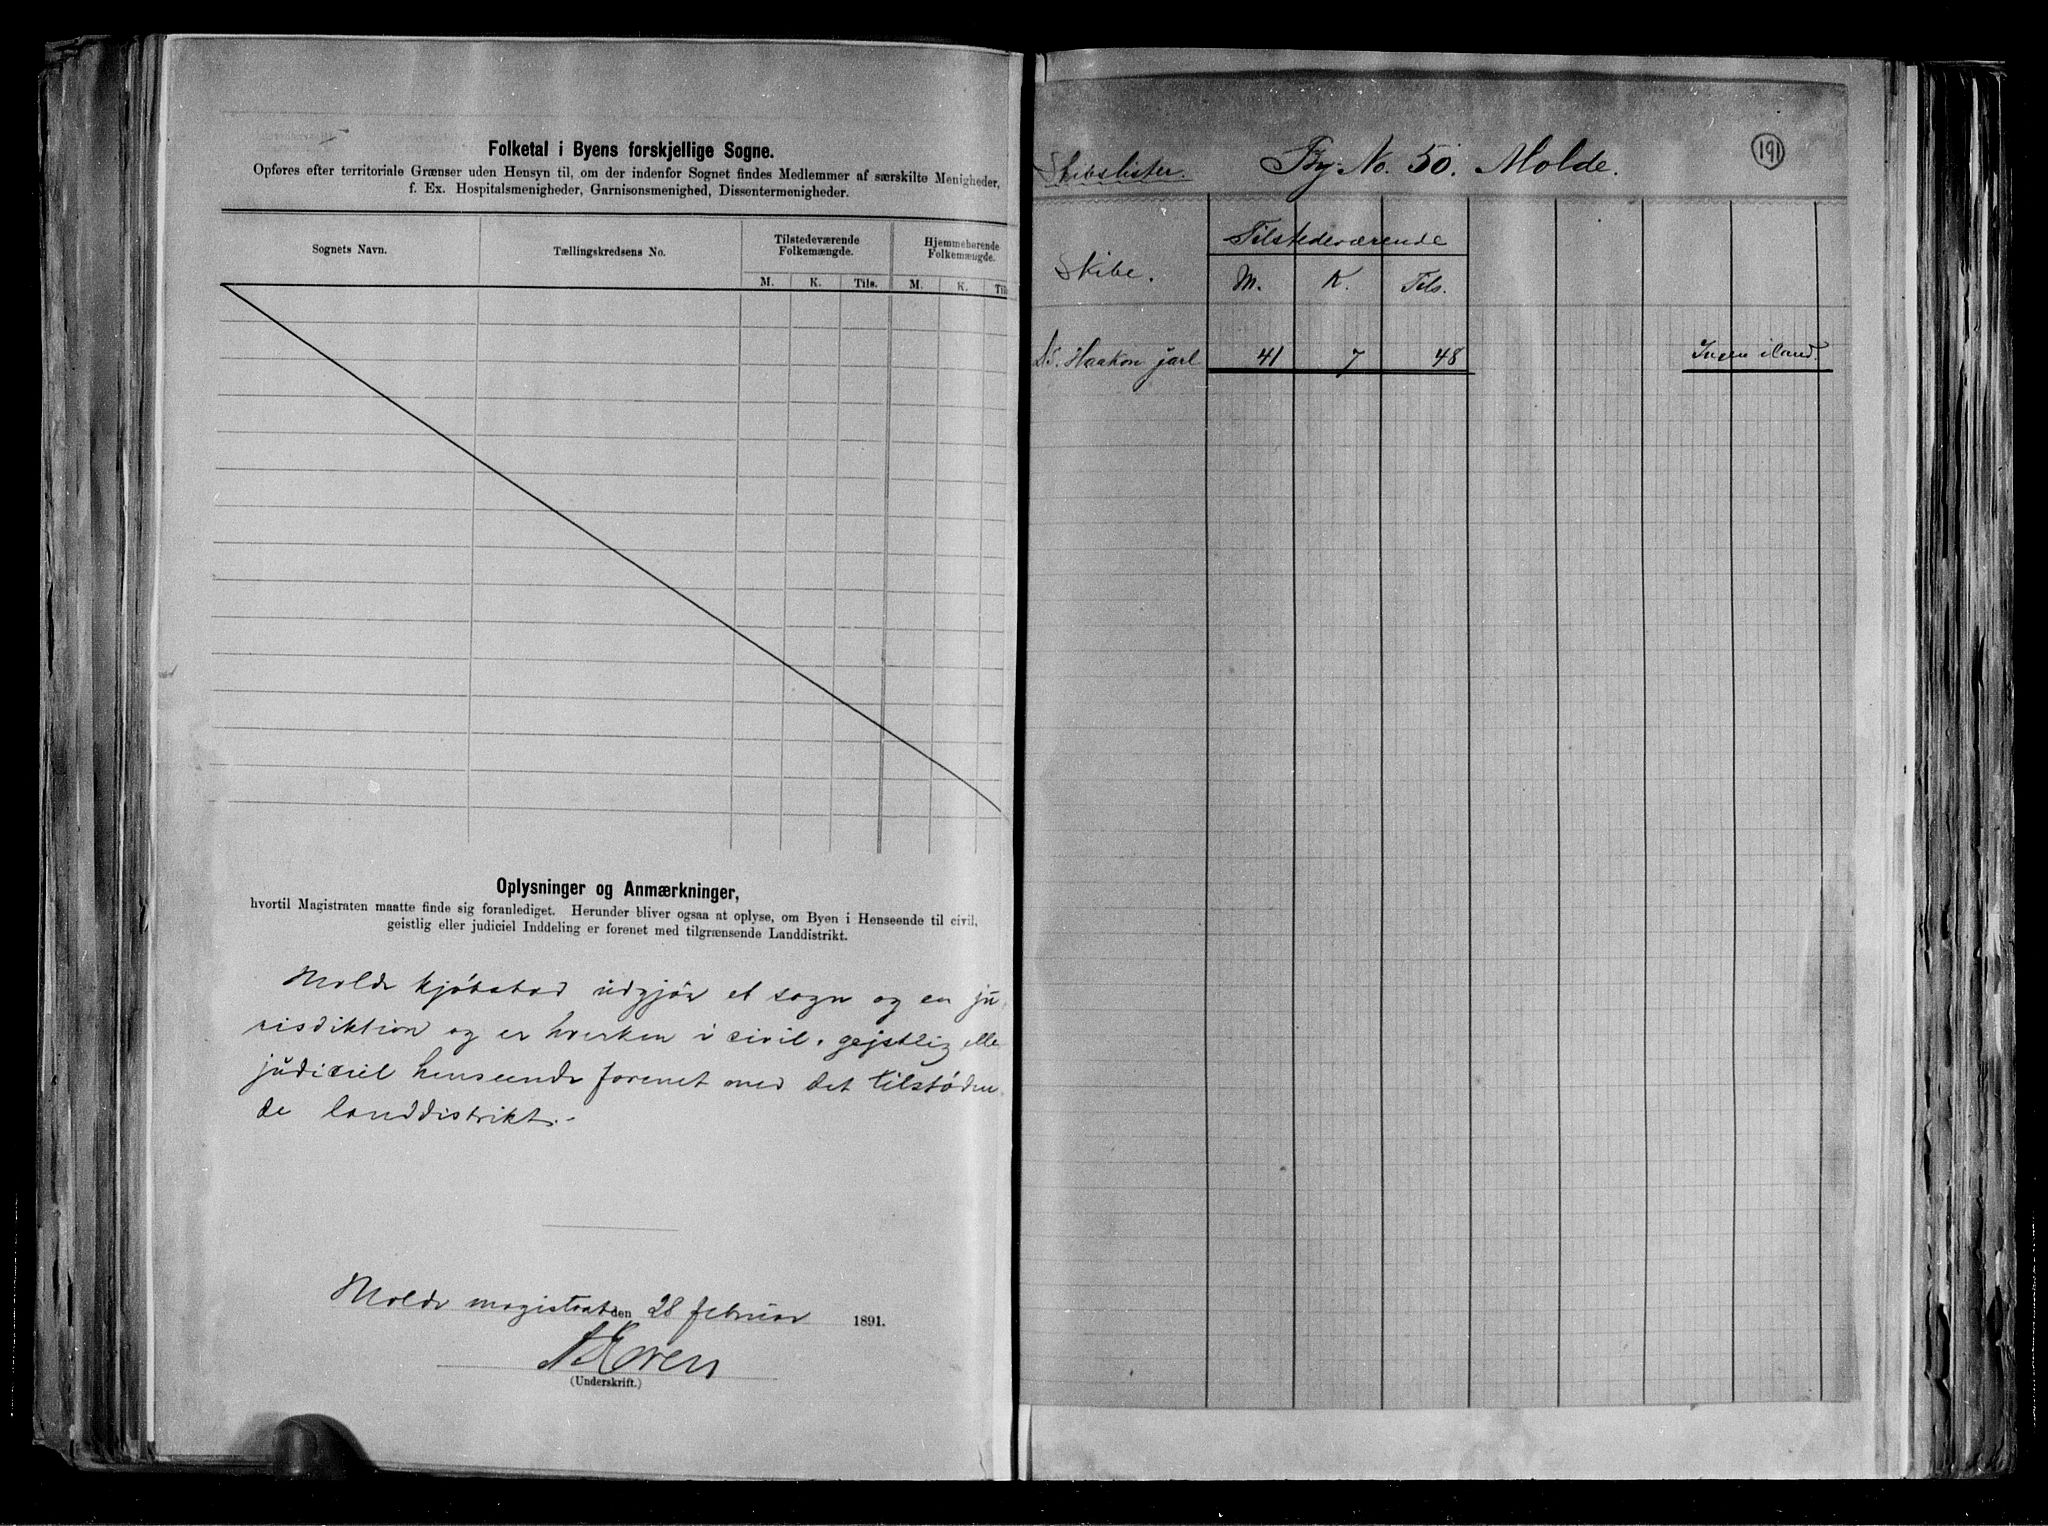 Folketal i Byens forskjellige Sogne.
Opføres efter territoriale Grænser uden Hensyn til, om der indenfor Sognet findes Medlemmer af særskilte Menigheder,
f. Ex. Hospitalsmenigheder, Garnisonsmenighed, Dissentermenigheder.
Sognets Navn. Tællingskredsens No. Tilstedeværende Folkemængde. Hjemmehørende Folkemængde.
M. K. Tils. M. K. Til
Oplysninger og Anmærkninger,
hvortil Magistraten maatte finde sig foranlediget. Herunder bliver ogsaa at oplyse, om Byen i Henseende til civil,
geistlig eller judiciel Inddeling er forenet med tilgrænsende Landdistrikt.
Molde kjøbstad udgjør et sogn og en ju
risdiktion og er hverken i civil, gejstlig elle
judiciel henseende forenet med det tilstøden
de landdistrikt.-
Molde magistrat den 28 februar 1891.
(Underskrift.)
191
Skibslister. By No. 50. Molde.
Skibe. Tilstedeværende
M. K. Tils.
DS. Haakon jarl 41 7 48 Ingen iland.